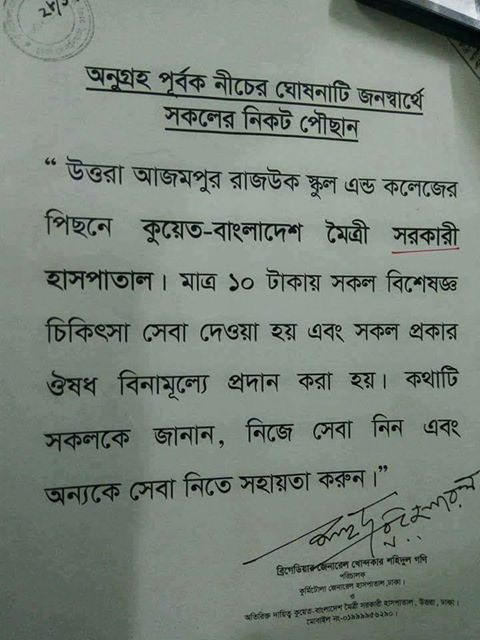 ২৮/
অনুগ্রহ পূর্বক নীচের ঘোষনাটি জনস্বার্থে
সকলের নিকট পৌছান
“ উত্তরা আজমপুর রাজউক স্কুল এন্ড কলেজের
পিছনে কুয়েত-বাংলাদেশ মৈত্রী সরকারী
হাসপাতাল। মাত্র ১০ টাকায় সকল বিশেষজ্ঞ
চিকিৎসা সেবা দেওয়া হয় এবং সকল প্রকার
ঔষধ বিনামূল্যে প্রদান করা হয়। কথাটি
সকলকে জানান, নিজে সেবা নিন এবং
অন্যকে সেবা নিতে সহায়তা করুন।”
ব্রিগেডিয়ার জেনারেল খোন্দকার শহিদুল গণি
পরিচালক
কুর্মিটোলা জেনারেল হাসপাতাল,ঢাকা।
ও
অতিরিক্ত দায়িত্ব কুয়েত-বাংলাদেশ মৈত্রী সরকারী হাসপাতাল, উত্তরা, ঢাকা।
মোবাইল নং-০১৯৯৯৫৬২৯০।